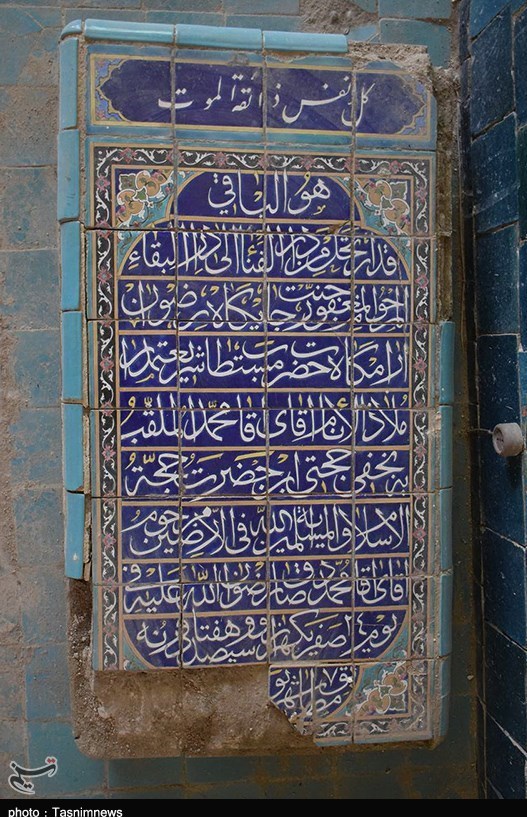 کل نفس ذائقة الموت
هو الباقی
قد ارتحل من دار الفناء الی دار البقاء
المرحوم المغفور جنت جایگاه رضوان
آرامگاه حضرت مستطاب شریعتمدار
ملاذ الانام آقای آقا محمد الملقب
به نجفی حجتی ابن حضرت حجة
الاسلام و المسلمین آیة الله فی الارضین مرحوم
آقای آقا محمد صادق رضوان الله علیه فی
یوم ٤ صفر یکهزار و سیصد و هفتاد
تسنیم
photo : Tasnimnews